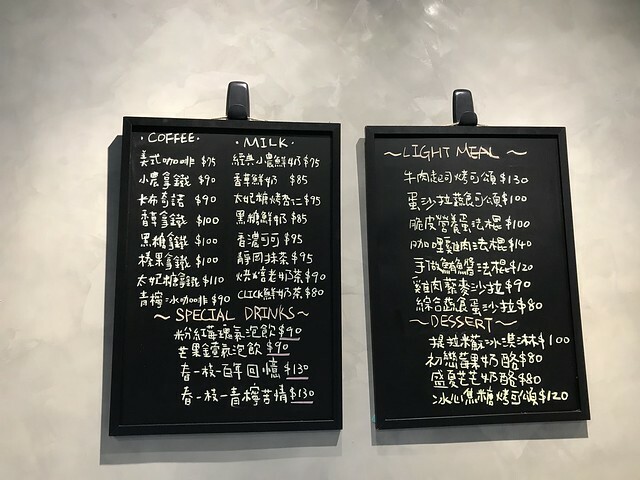 ·COFFEE·
美式咖啡 $75
小農拿鐵 $90
卡布奇諾 $90
香草拿鐵 $100
黑糖拿鐵 $100
榛果拿鐵 $100
太妃糖拿鐵 $110
青檸冰咖啡 $90
·MILK·
經典小農鮮奶 $75
香草鮮奶 $85
太妃糖烤杏仁 $95
黑糖鮮奶 $85
香濃可可 $95
靜岡抹茶 $95
烘焙老奶茶 $90
CLICK鮮奶茶 $80
~SPECIAL DRINKS~
粉紅莓瑰氣泡飲 $90
芒果鐘氣泡飲 $90
春一枝-百年回憶 $130
春一枝-青檸苦情 $130
~LIGHT MEAL~
牛肉起司烤可頌 $130
蛋沙拉蔬食可頌 $100
脆皮營養蛋法棍 $100
咖哩雞肉法棍 $140
手做鮪魚醬法棍 $120
雞肉藜麥沙拉 $90
綜合蔬食蛋沙拉 $80
~DESSERT~
提拉米蘇冰淇淋 $100
初戀莓果奶酪 $80
盛夏芒芒奶酪 $80
冰心焦糖烤可頌 $120